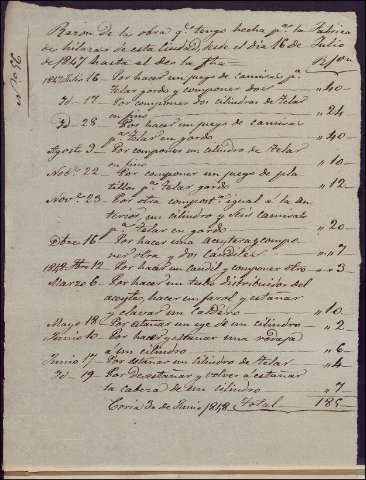 Razon de la obra q.e tengo hecha p.a la Fabrica
de hilazas de esta Ciudad, desde el dia 16 de Julio
de 1847 hasta el de la fha=
R.s von
1847 Julio 16 - Por hacer un juego de camisas p.a
telar gordo y componer dos — " 40
Id - 17 - Por componer dos cilindros de telar
en fino — " 24
Id - 28 - Por hacer un juego de camisas
p.a telar en gordo — " 40
Agosto 9 - Por componer un cilindro de telar
en fino — " 10
Nov.e 22 - Por componer un juego de pla
tillos p.a telar gordo — " 12
Nov.e 23 - Por otra compost.n igual a la an
terior, un cilindro y seis camisas
p.a telar en gordo — " 20
Dbre 16 - Por hacer una aceytera y compo
ner otra y dos candiles — " 7
1848 12 - Por hacer un candil y componer otro — " 3
Marzo 6 - Por hacer un tubo distribuidor del
aceyte, hacer un farol y estañar
y clavar un caldero — " 10
Mayo 18 - Por estañar un eje de un cilindro — " 2
Junio 10 - Por hacer y estañar una rodaja
á un cilindro — " 6
Junio 17 - Por estañar un cilindro de telar — " 4
Id - 19 - Por desestañar y volver a estañar
la cabeza de un cilindro — " 7
Coria 30 de Junio 1848. Total — 185